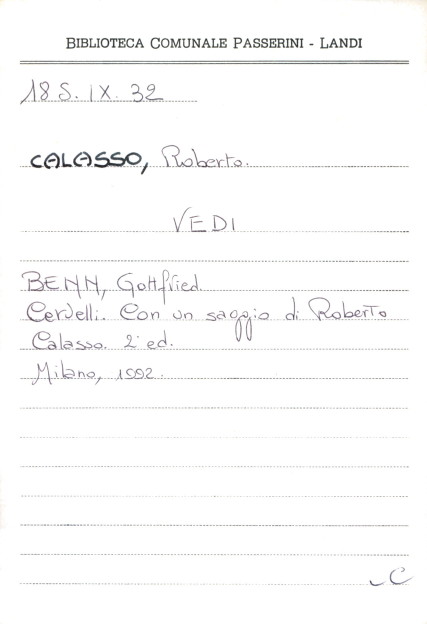 BIBLIOTECA COMUNALE PASSERINI - LANDI
18 S. IX. 32
CALASSO, Roberto.
VEDI
BENN, Gottfried.
Cervelli. Con un saggio di Roberto
Calasso. 2ª ed.
Milano, 1992.
C